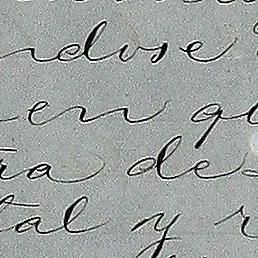 ndose
en qu
ra de
tal y r